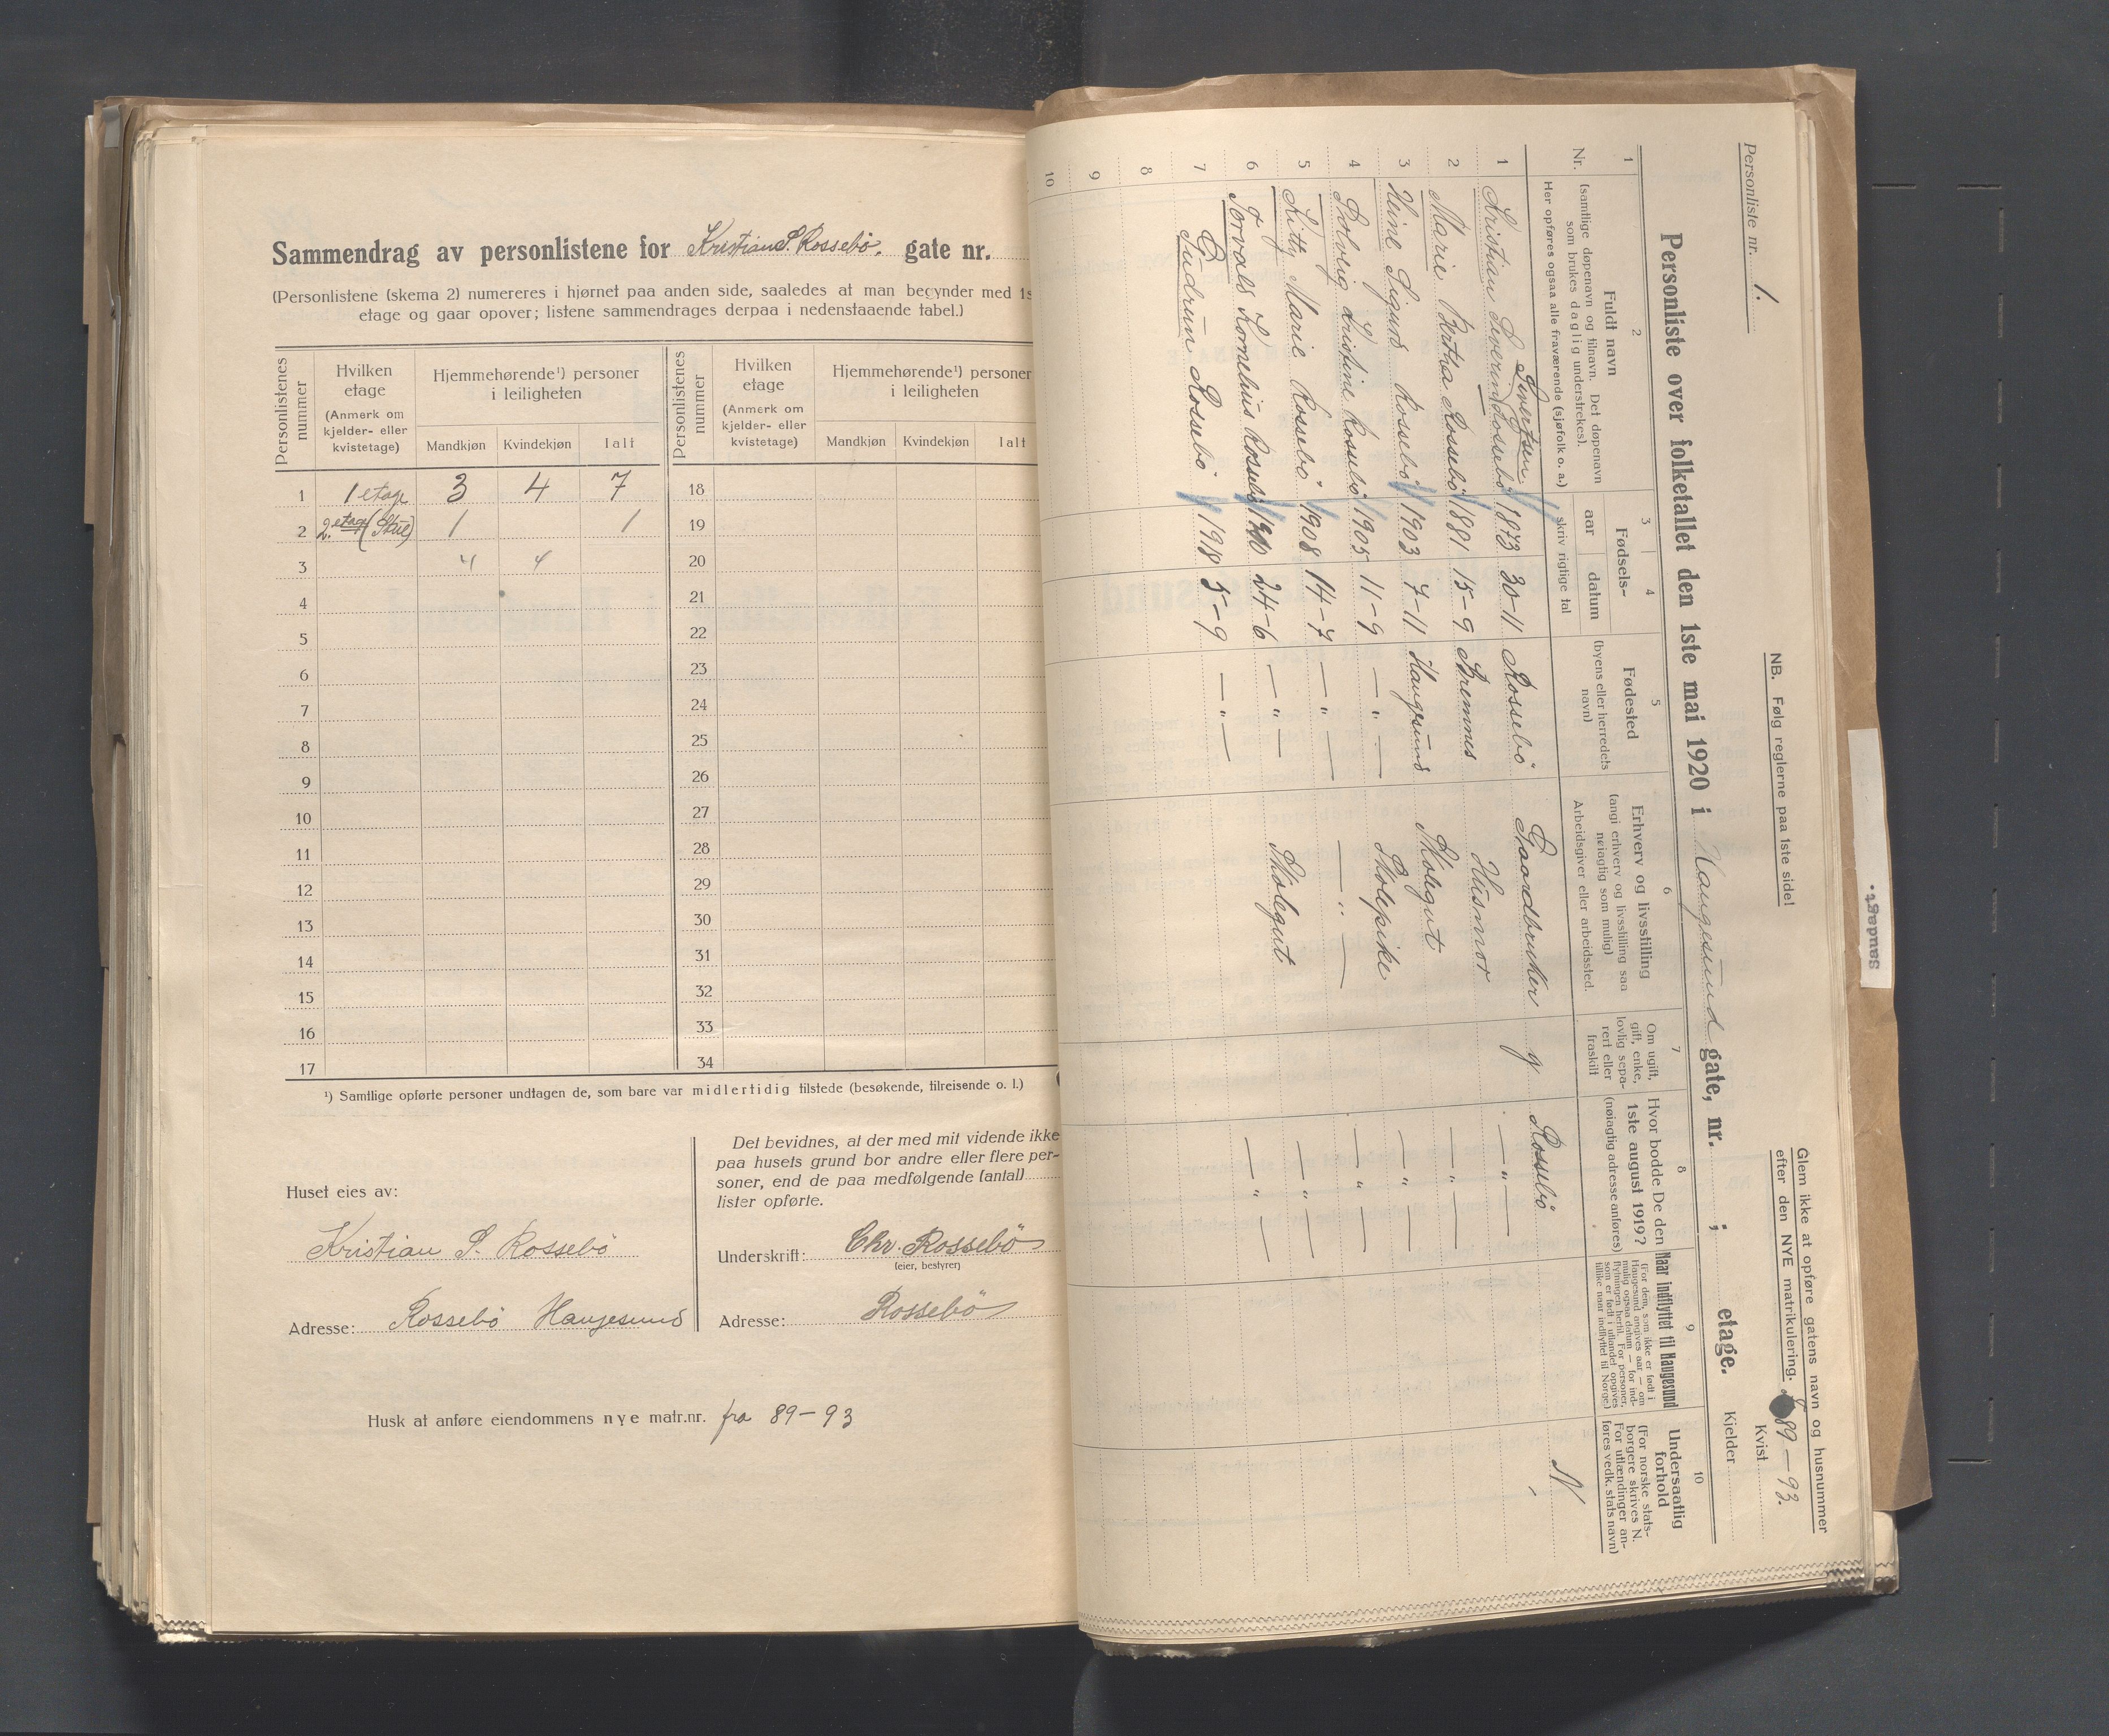 Sammendrag av personlistene for Kristian S. Rossebö. gate nr.
(Personlistene (skema 2) numereres i hjørnet paa anden side, saaledes at man begynder med 1s
etage og gaar opover; listene sammendrages derpaa i nedenstaaende tabel.)
Personlistenes nummer
Hvilken etage
(Anmerk om kjelder- eller kvistetage)
Hjemmehørende¹) personer i leiligheten
Mandkjøn Kvindekjøn Ialt
Personlistenes nummer
Hvilken etage
(Anmerk om kjelder- eller kvistetage)
Hjemmehørende¹) personer i leiligheten
Mandkjøn Kvindekjøn Ialt
1 1 etage 3 4 7 18
2 2. etage 1 1 19
3 4 4 20
4 21
5 22
6 23
7 24
8 25
9 26
10 27
11 28
12 29
13 30
14 31
15 32
16 33
17 34
¹) Samtlige opførte personer undtagen de, som bare var midlertidig tilstede (besøkende, tilreisende o. l.)
Huset eies av:
Kristian S. Rossebö
Adresse: Rossebö Haugesund
Det bevidnes, at der med mit vidende ikke
paa husets grund bor andre eller flere per-
soner, end de paa medfølgende (antal)
lister opførte.
Underskrift: Chr. Rossebö
(eier, bestyrer)
Adresse: Rossebö
Husk at anføre eiendommens nye matr.nr. fra 89-93
Personliste nr. 1.
NB. Følg reglerne paa 1ste side!
Glem ikke at opføre gatens navn og husnummer
efter den NYE matrikulering. 89-93.
Kvist
Personliste over folketallet den 1ste mai 1920 i Haugesund gate, nr. ; etage.
Kjelder
1 2 3 4 5 6 7 8 9 10
Nr.
Fuldt navn
(samtlige døpenavn og tilnavn. Det døpenavn
som brukes daglig understrekes).
Her opføres ogsaa alle fraværende (sjøfolk o. a.)
Fødsels-
aar datum
skriv rigtige tal
Fødested
(byens eller herredets
navn)
Erhverv og livsstilling
(angi erhverv og livsstilling saa
nøiagtig som mulig)
Arbeidsgiver eller arbeidssted.
Om ugift,
gift, enke,
lovlig sepa-
rert eller
fraskilt
Hvor bodde De den
1ste august 1919?
(nøiagtig adresse anføres)
Naar indflyttet til Haugesund
(For dem, som ikke er født i
Haugesund angives aar — om
mulig ogsaa datum — for ind-
flytningen hertil. For personer,
som er født i utlandet opgives
tillike naar indflyttet til Norge)
Undersaatlig
forhold
(For norske stats-
borgere skrives N.
For utlændinger an-
føres vedk. stats navn)
Sivertsen
1 Kristian Severin Rossebö 1873 30-11 Rossebö Gaardbruker g Rossebö N
2 Marie Bertha Rossebö 1881 15-9 Bremnes Husmor — " —
3 Heine Sigurd Rossebö 1903 7-11 Haugesund Skolegut — " —
4 Solveig Kristine Rossebö 1905 11-9 — " — Skolepike — " —
5 Kitty Marie Rossebö 1908 14-7 — " — — " — — " —
6 Torvald Kornelius Rossebö 1910 24-6 — " — Skolegut — " —
7 Gudrun Rossebö 1918 5-9 — " — — " —
8
9
10
Sandagt.